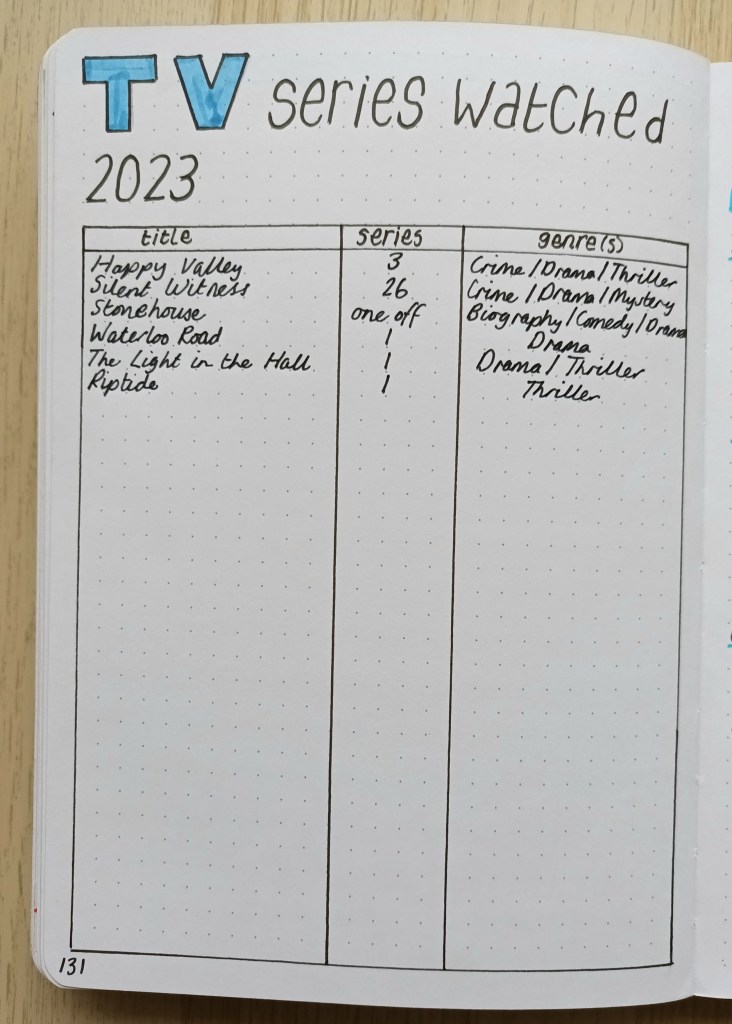 TV series watched
2023
title series genre(s)
Happy Valley 3 Crime/Drama/Thriller
Silent Witness 26 Crime/Drama/Mystery
Stonehouse one off Biography/Comedy/Drama
Waterloo Road 1 Drama
The Light in the Hall 1 Drama/Thriller
Riptide 1 Thriller
131